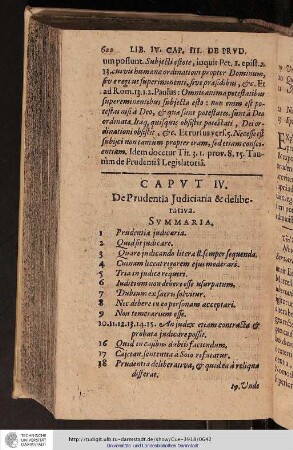 620 LIB. IV. CAP. III. DE PRVD.
um possunt. Subjecti estote, inquit Pet. 1. epist. 2.
13. cuivis humanæ ordinationi propter Dominum,
sive regi ut supereminenti, sive præsidibus, &c. Et
ad Rom. 13. 1. 2. Paulus: Omnis anima potestatibus
supereminentibus subjecta esto: non enim est po-
testas nisi à Deo, & quæ sunt potestates, sunt à Deo
ordinatæ. Itaq, quisquis obsistit potestati, Dei or-
dinationi obsistit, &c. Et rursus vers. 5. Necesse est
subjici non tantum propter iram, sed etiam consci-
entiam. Idem docetur Tit. 3. 1. prov. 8. 15. Tan-
tùm de Prudentiâ Legislatoriâ.
CAPVT IV.
De Prudentia Judiciaria & delibe-
rativa.
SVMMARIA.
1 Prudentia judicaria.
2 Quid sit judicare.
3 Quare judicando litera & semper sequenda.
4 Cuinam liceat rigorem ejus moderari.
5 Tria in judice requiri.
6 Judicium non debere esse usurpatum.
7 Dubium ex sacris solvitur.
8 Nec debere in eo personam acceptari.
9 Non temerarium esse.
10. 11. 12. 13. 14. 15. An judex etiam contra acta &
probata judicare possit.
16 Quid in casibus dubiis faciendum.
17 Cajetan. sententia à Soto refutatur.
18 Prudentia deliberativa, & quid ea à reliqua
differat.
19. Unde
TECHNISCHE
UNIVERSITÄT
DARMSTADT
http://tudigit.ulb.tu-darmstadt.de/show/Cue-3918/0642
Universitäts- und Landesbibliothek Darmstadt